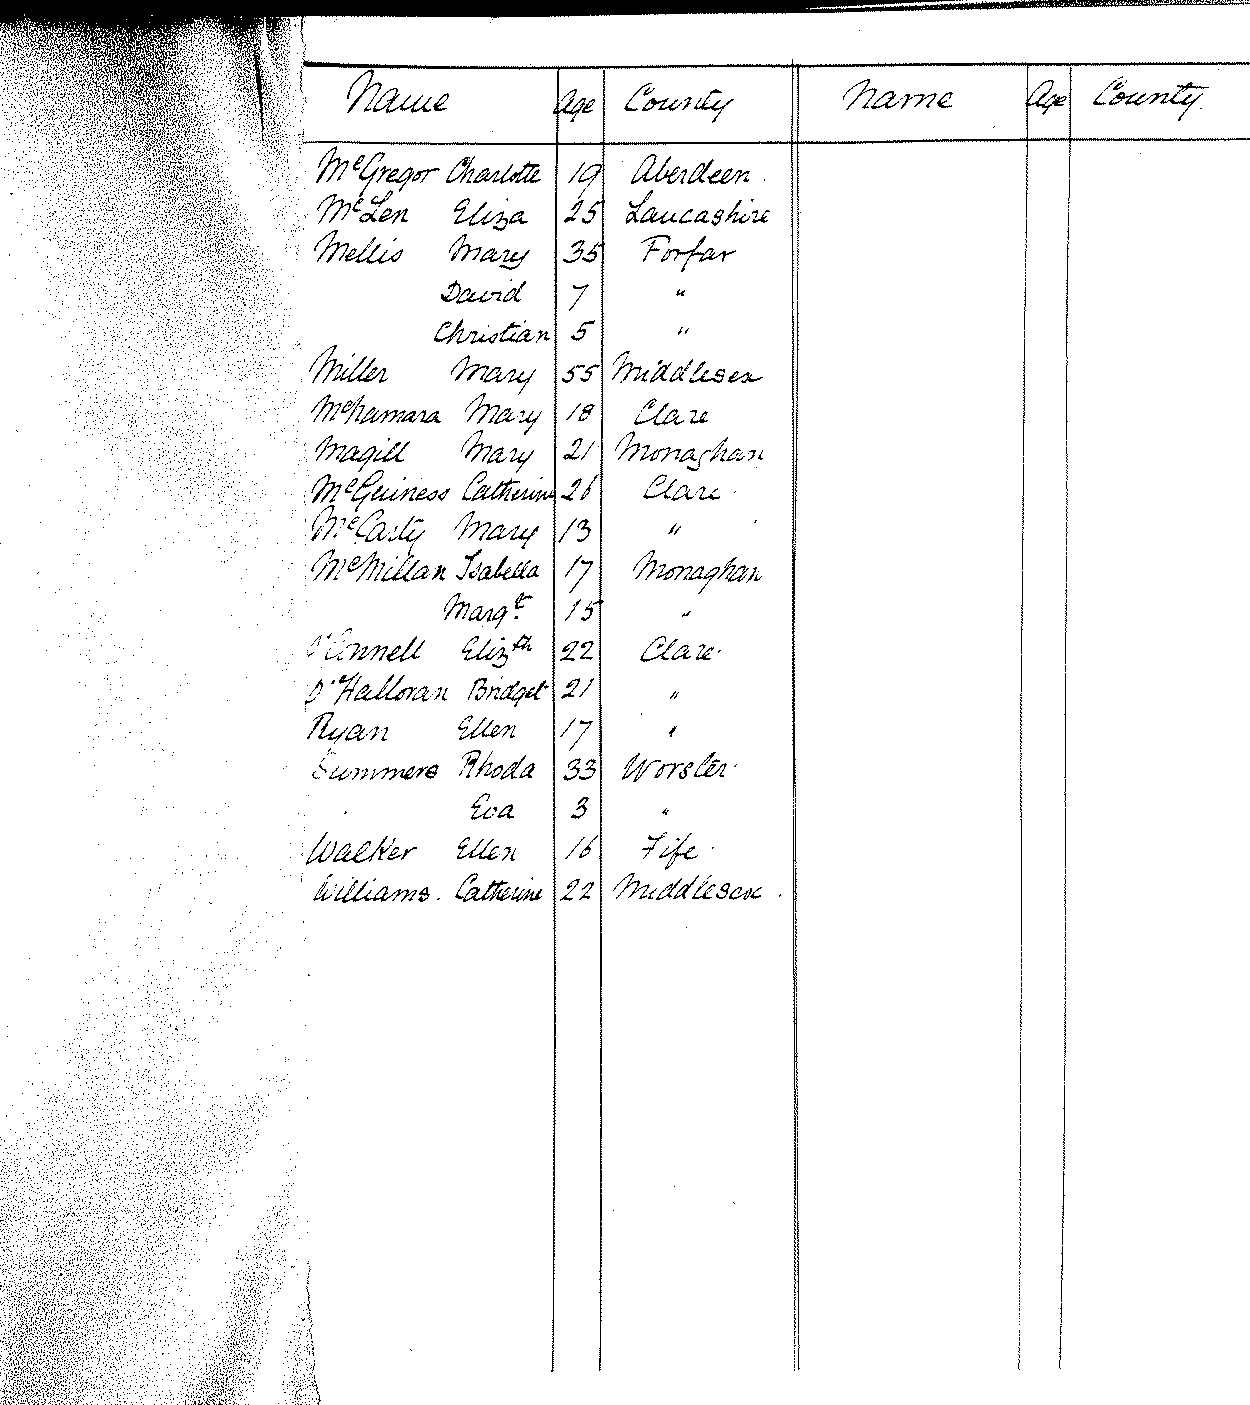 Name Age County Name Age County.
McGregor Charlotte 19 Aberdeen.
McLen Eliza 25 Lancashire
Mellis Mary 35 Forfar
David 7 "
Christian 5 "
Miller Mary 55 Middlesex
McNamara Mary 18 Clare
Magill Mary 21 Monaghan
McGuiness Catherine 26 Clare.
McCarty Mary 13 "
McMillan Isabella 17 Monaghan
Margt. 15 "
O'Connell Elizth 22 Clare.
O'Halloran Bridget 21 "
Ryan Ellen 17 "
Summers Rhoda 33 Worster.
Eva 3 "
Walker Ellen 16 Fife.
Williams. Catherine 22 Middlesex.